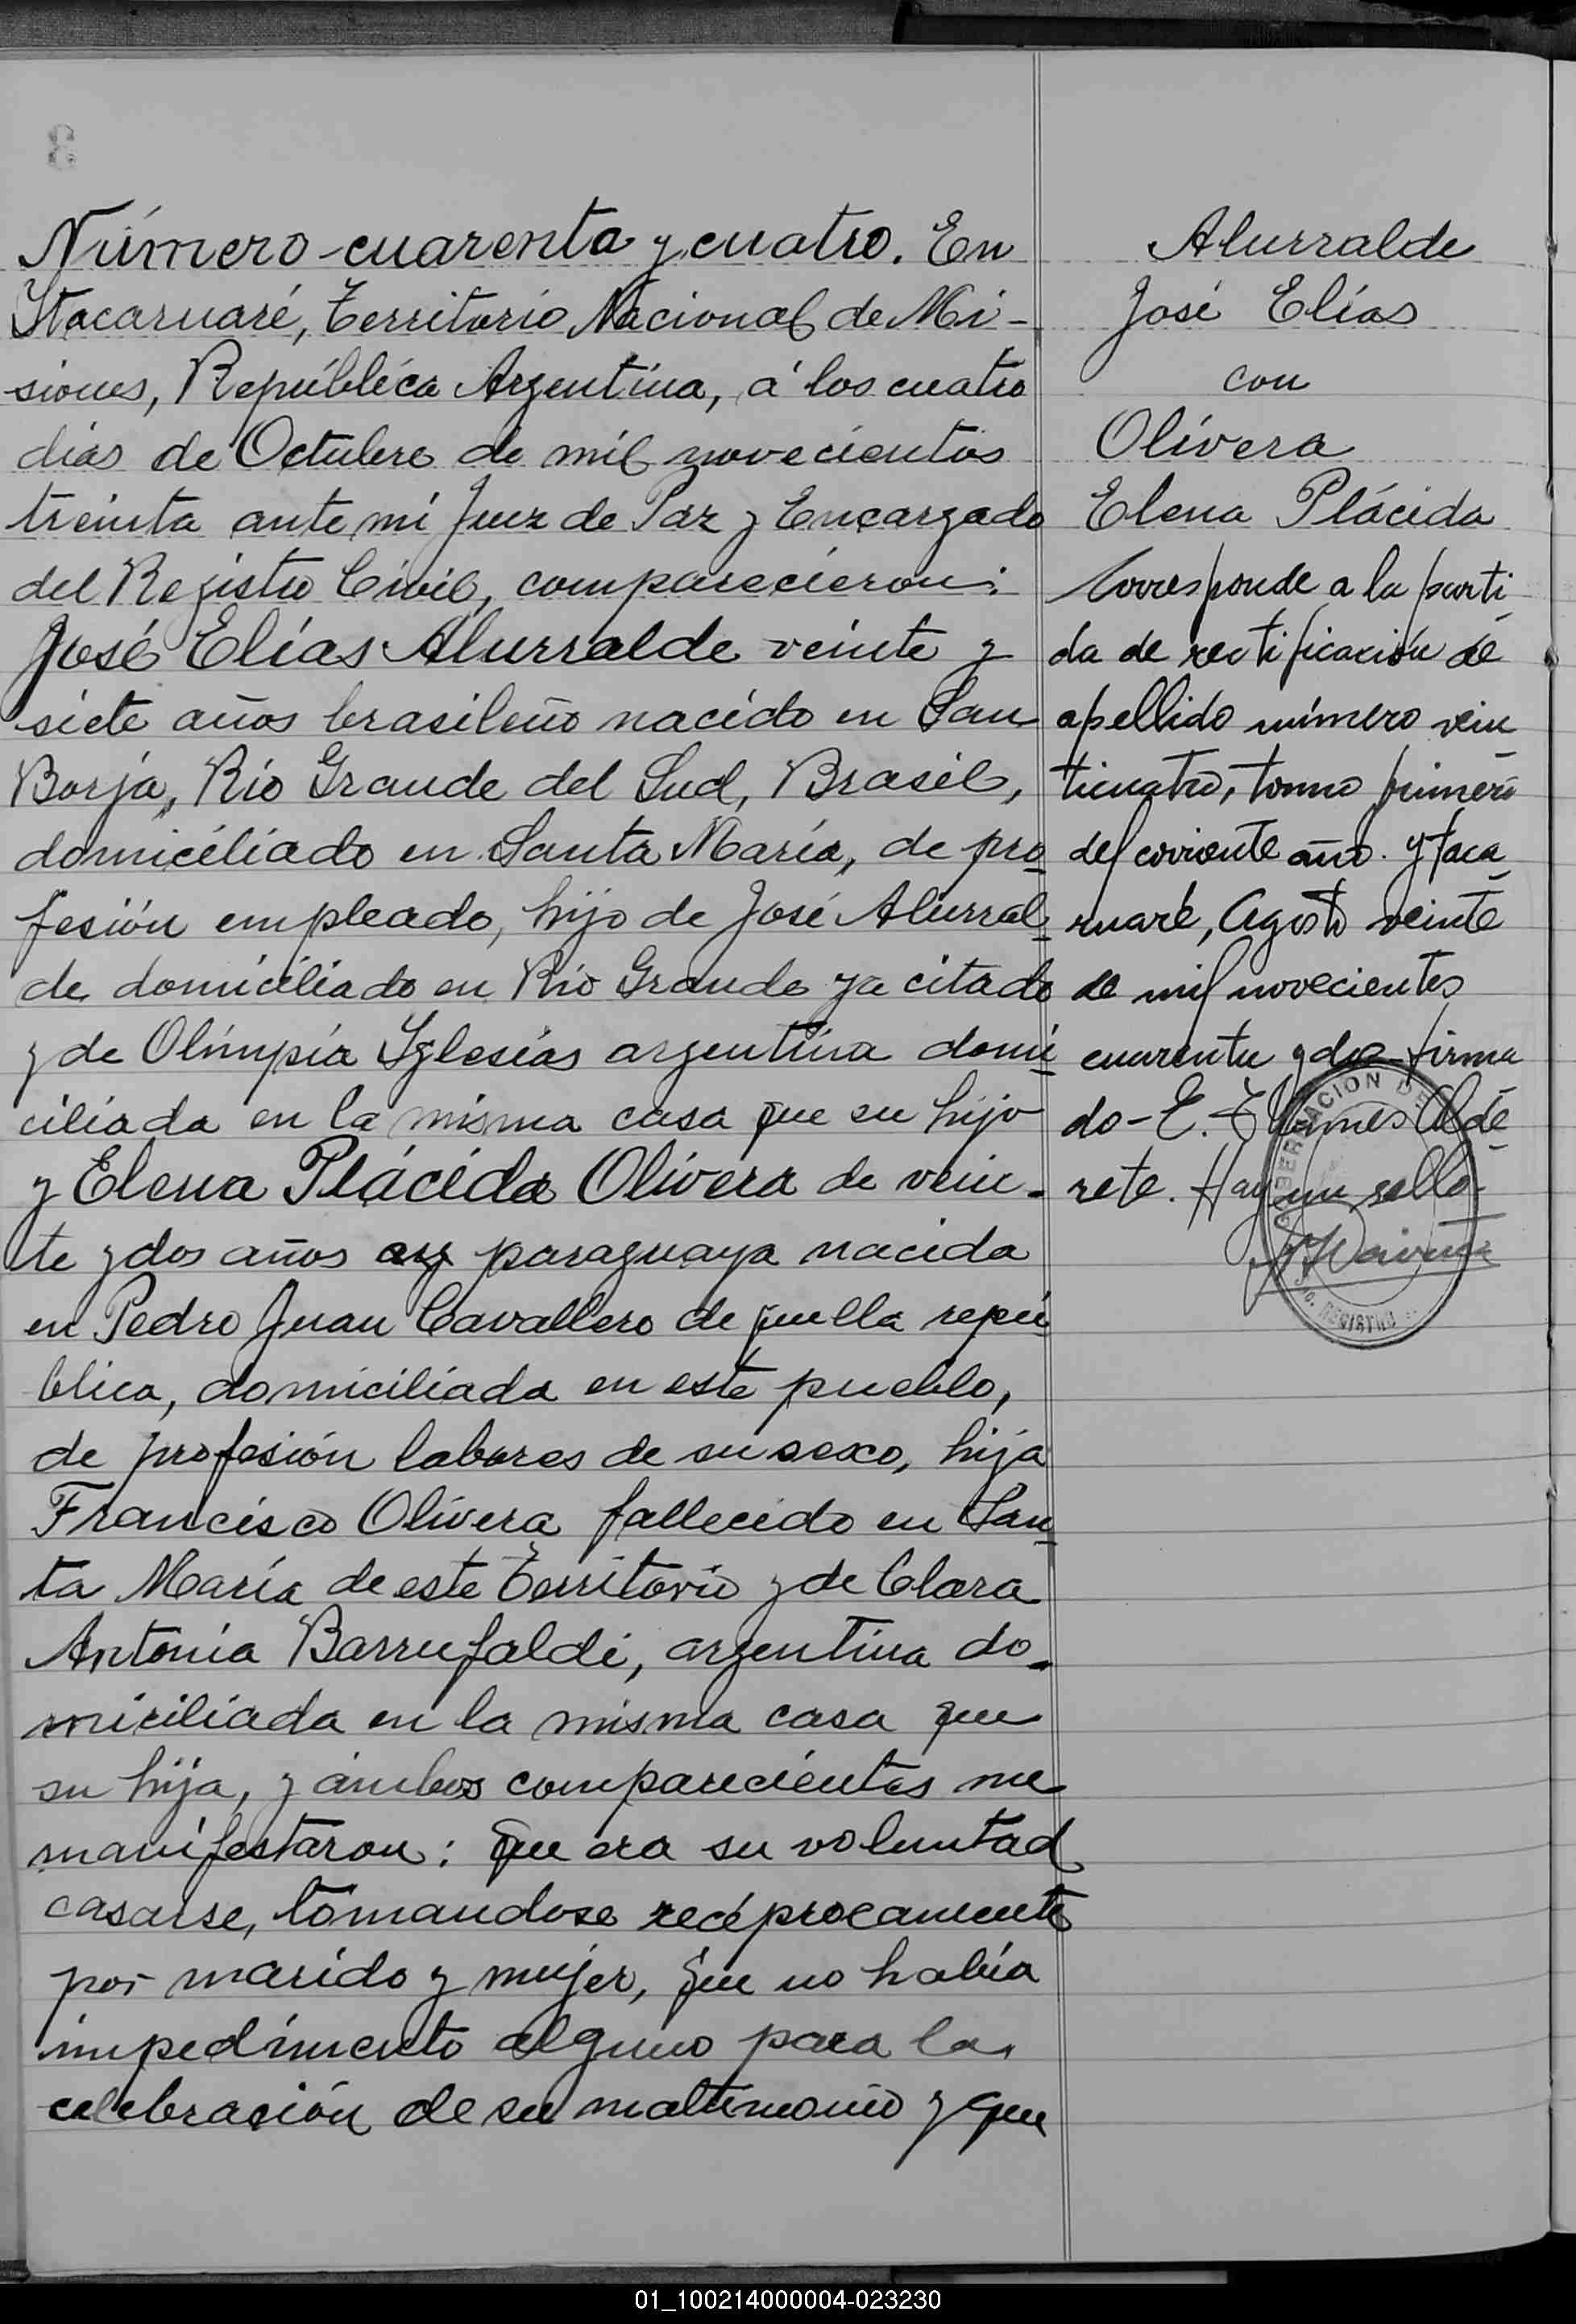 Número cuarenta y cuatro. En
Ytacaruaré, Territorio Nacional de Mi-
siones, República Argentina, á los cuatro
dias de Octubre de mil novecientos
treinta ante mi Juez de Paz y Encargado
del Registro Civil, comparecieron:
José Elías Alurralde veinte y
siete años brasileño nacido en San
Borja, Rio Grande del Sud, Brasil,
domiciliado en Santa María, de pro-
fesión empleado, hijo de José Alurral-
de domiciliado en Rio Grande ya citado
y de Olimpia Yglesias argentina domi-
ciliada en la misma casa que su hijo
y Elena Plácida Olivera de vein-
te y dos años paraguaya nacida
en Pedro Juan Cavallero de quella repú-
blica, domiciliada en este pueblo,
de profesión labores de su sexo, hija
Francisco Olivera fallecido en San-
ta María de este Territorio y de Clara
Antonia Barrufaldi, argentina do-
miciliada en la misma casa que
su hija, y ámbos comparecientes me
manifestaron: Que era su voluntad
casarse, tomandose recíprocamente
por marido y mujer, que no había
impedimento alguno para la
celebración de su matrimonio y que
Alurralde
José Elías
con
Olivera
Elena Plácida
Corresponde a la parti-
da de rectificación de
apellido número vein-
ticuatro, tomo primero
del corriente año. Ytaca-
ruaré, Agosto veinte
de mil novecientos
cuarenta y dos firma-
do - E. Alde-
rete. Hay un sello-
REGISTRO
01_100214000004-023230